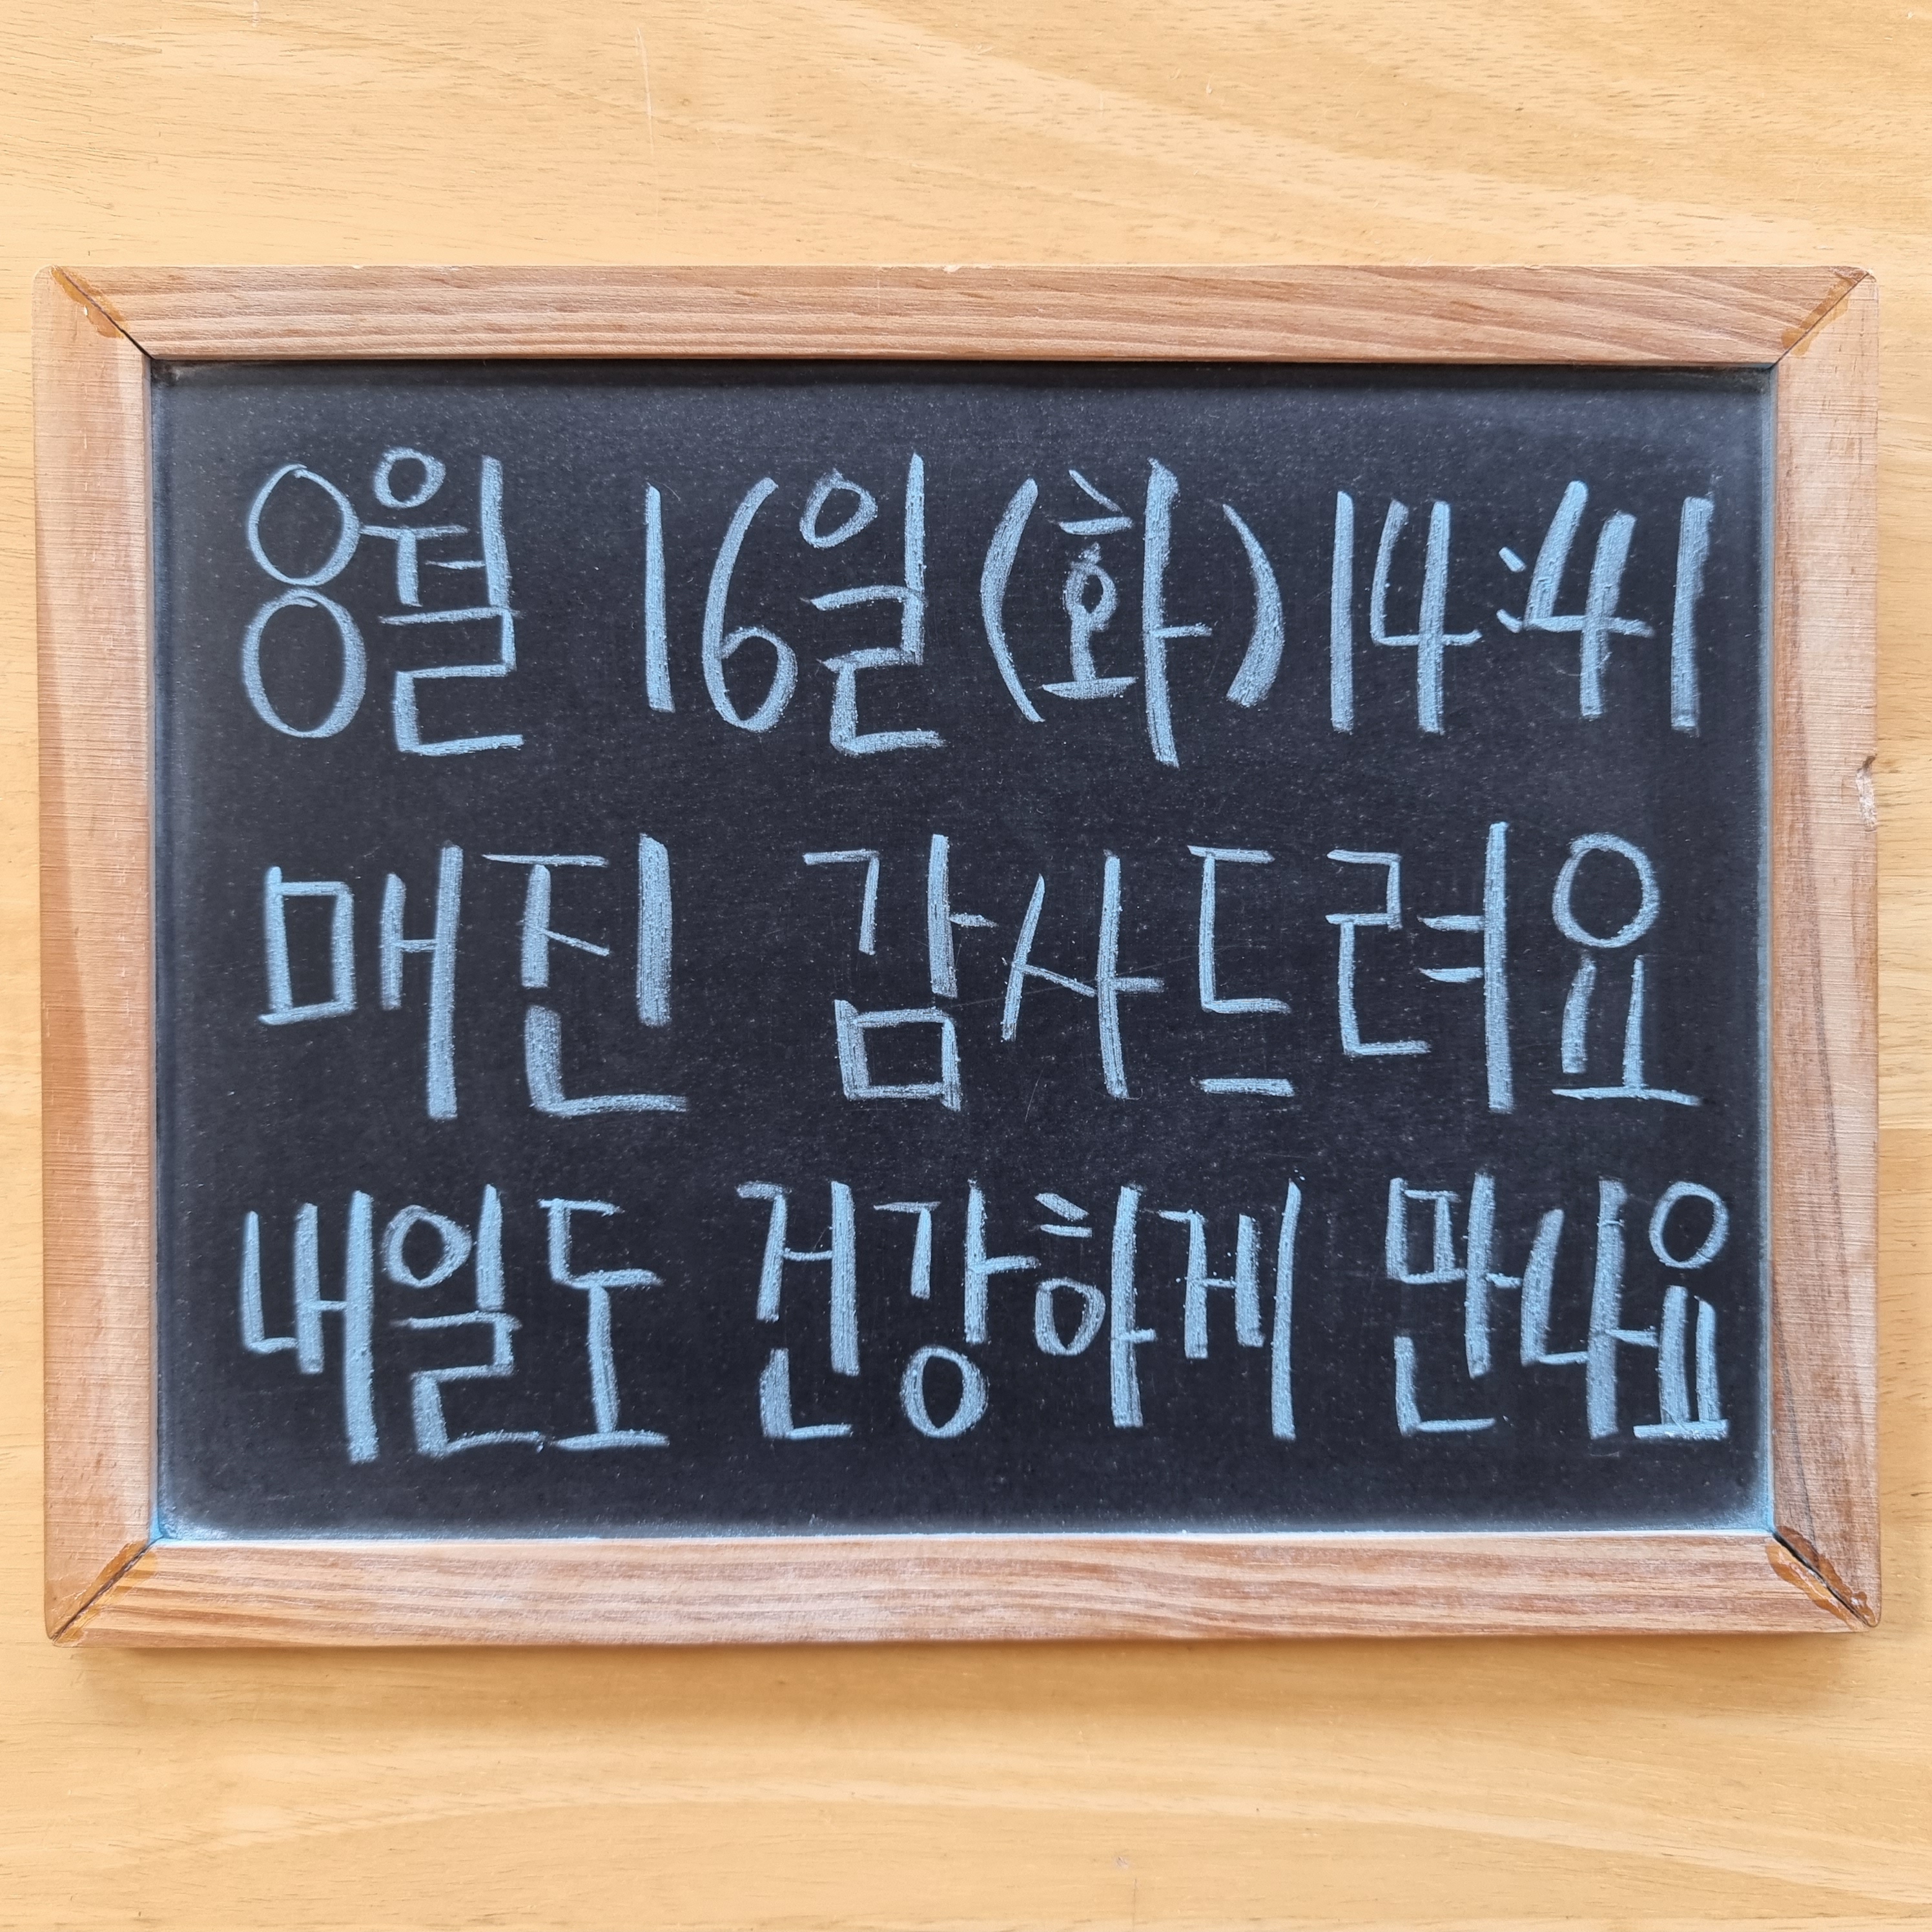 8월 16일(화)14:41
매진 감사드려요
내일도 건강하게 만나요